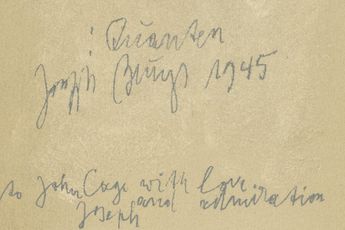 Quanten
Joseph Beuys 1945
to John Cage with love
Joseph and admiration